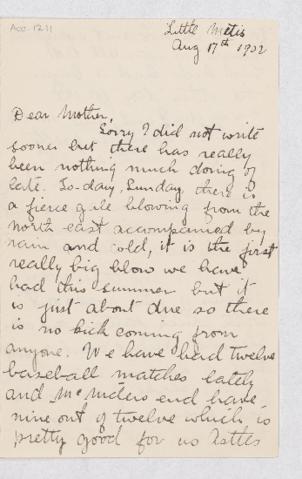 Acc. 1211
Little Metis
Aug 17th 1902
Dear Mother,
Sorry I did not write
sooner but there has really
been nothing much doing of
late. To-day, Sunday, there is
a fierce gale blowing from the
north east accompanied by
rain and cold, it is the first
really big blow we have
had this summer but it
is just about due so there
is no kick coming from
anyone. We have had twelve
baseball matches lately
and end have
nine out of twelve which is
pretty good for us